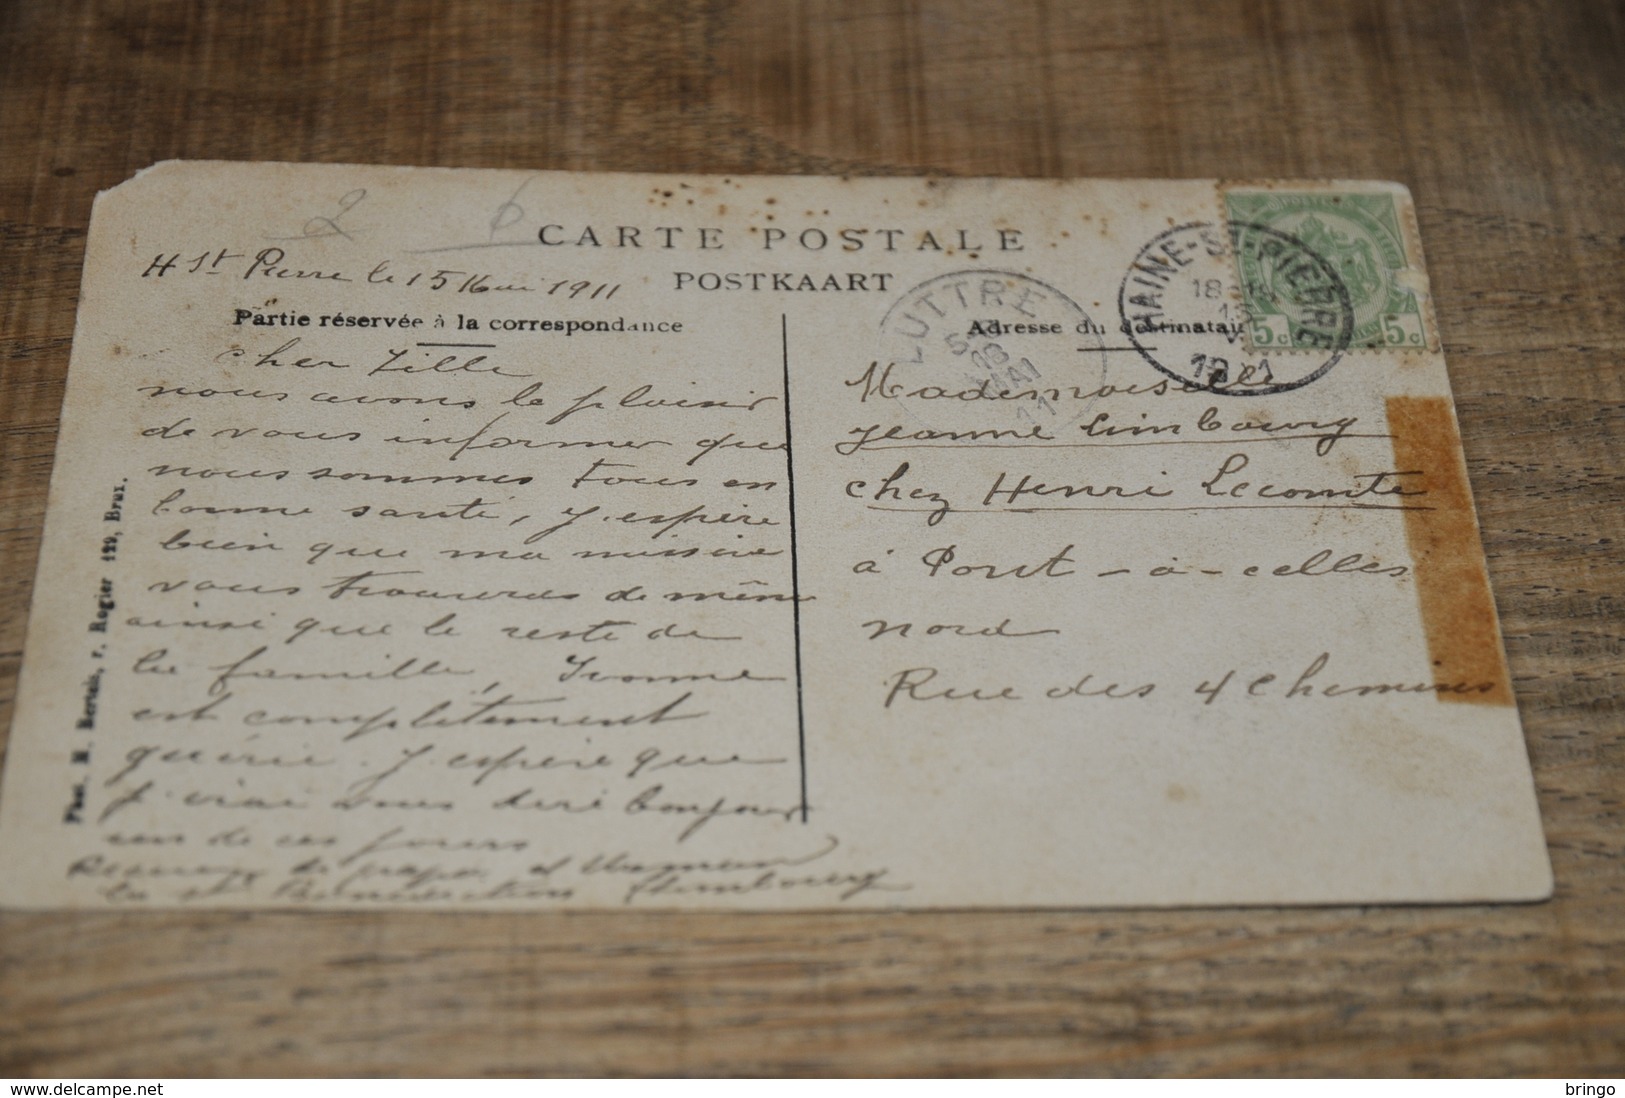 2 6
CARTE POSTALE
POSTKAART
H St Pierre le 15 Mai 1911
Partie réservée à la correspondance
cher fille
nous avons le plaisir
de vous informer que
nous sommes tous en
bonne santé, J'espère
bien que ma missive
vous trouveras de même
ainsi que le reste de
la famille, Ivonne
est complètement
guérie. J'espère que
j'irai vous dire bonjour
un de ces jours
la st Limbourg
Phot. M. Bertais, r. Rogier 129, Brux.
LUTTRE
16
MAI
11
Adresse du destinatai
HAINE-ST-PIERRE
18-19
15
V
1911
POSTES
5c 5c
Mademoiselle
Jeanne Limbourg
chez Henri Lecomte
à Pont-à-celles
nord
Rue des 4 chemins
delcampe.net
bringo